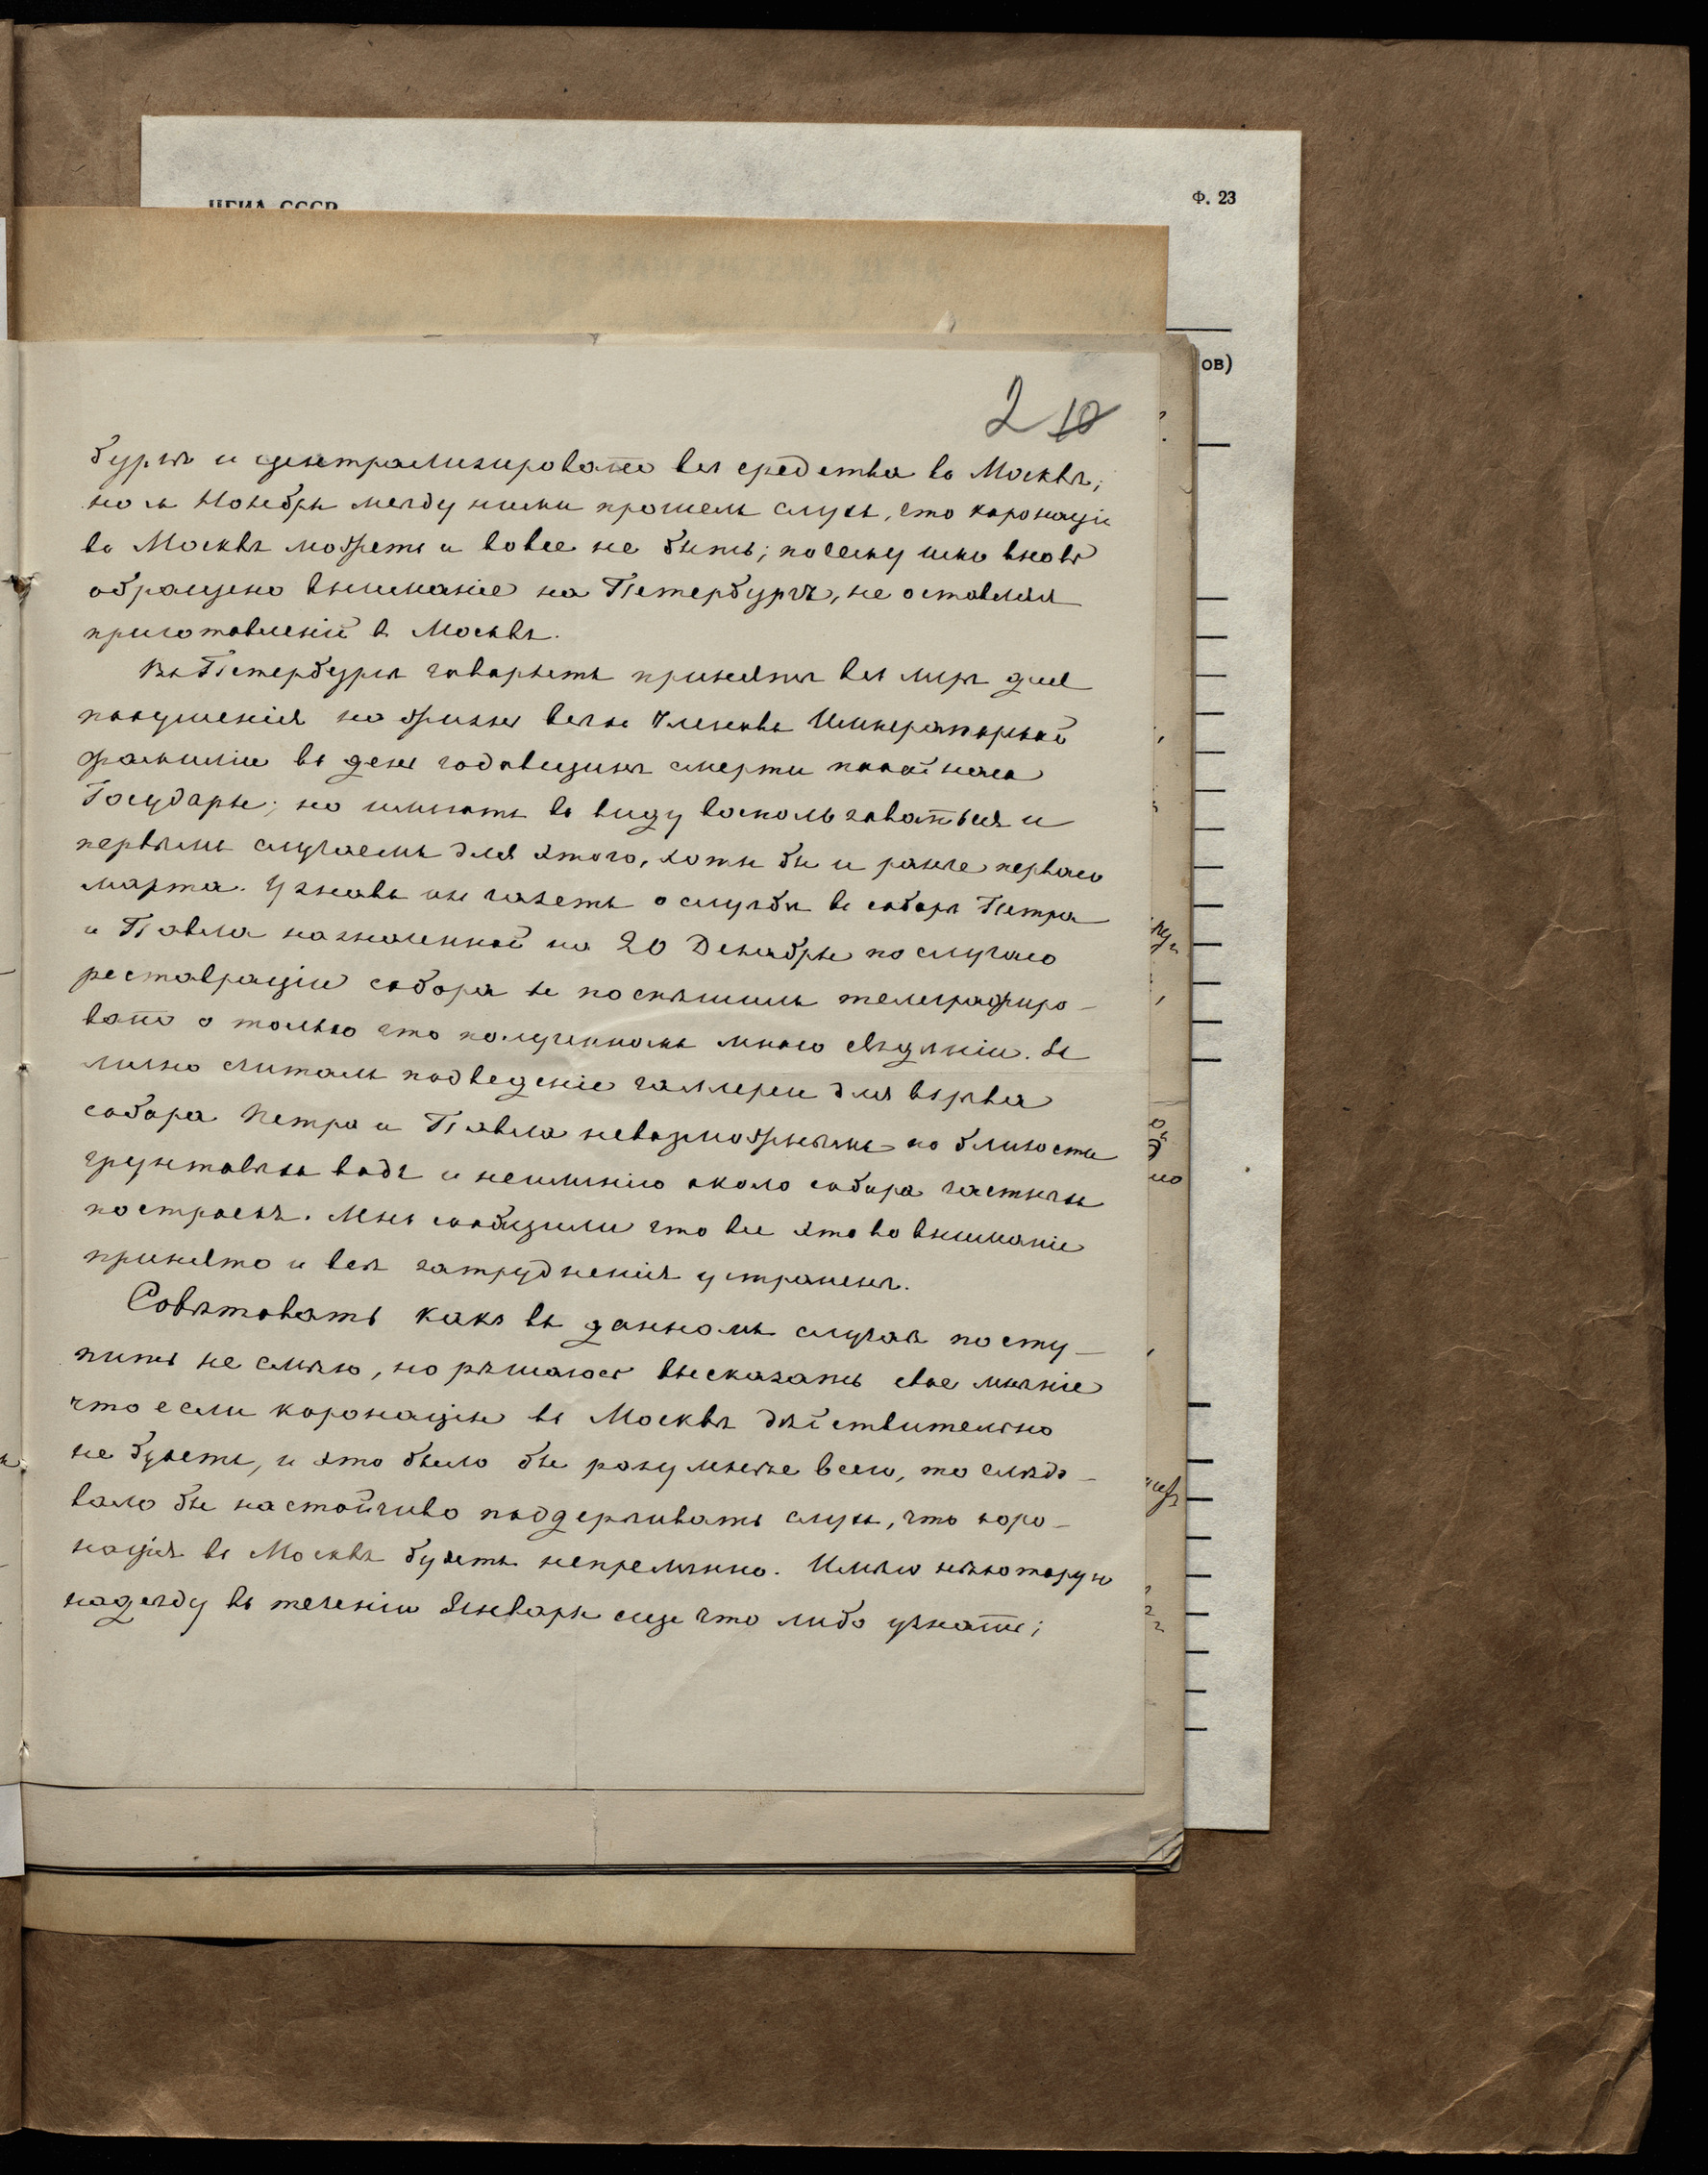 Ф. 23
ЦГИА СССР
ов)
2 10
бургѣ и централизировать всѣ средства въ Москвѣ;
но въ Ноябрѣ между ними прошелъ слухъ, что коронаціи
въ Москвѣ можетъ и вовсе не быть; почему ими вновь
обращено вниманіе на Петербургъ, не оставляя
приготовленій въ Москвѣ.
Въ Петербургѣ говорятъ приняты всѣ мѣры для
покушенія на жизнь всѣхъ Членовъ Императорской
фамиліи въ день годовщины смерти покойнаго
Государя; но имѣютъ въ виду воспользоваться и
первымъ случаемъ для этого, хотя бы и ранѣе перваго
марта. Узнавъ изъ газетъ о службѣ въ соборѣ Петра
и Павла назначенной на 20 Декабря по случаю
реставраціи собора я поспѣшилъ телеграфиро-
вать о только что полученномъ мною свѣдѣніи. Я
лично считалъ подведеніе галлереи для взрыва
собора Петра и Павла невозможнымъ по близости
грунтовыхъ водъ и неимѣнію около собора частныхъ
построекъ. Мнѣ сообщили что все это во вниманіе
принято и всѣ затрудненія устранены.
Совѣтовать какъ въ данномъ случаѣ посту-
пить не смѣю, но рѣшаюсь высказать свое мнѣніе
что если коронаціи въ Москвѣ дѣйствительно
не будетъ, и это было бы разумнѣе всего, то слѣдо-
вало бы настойчиво поддерживать слухъ, что коро-
нація въ Москвѣ будетъ непремѣнно. Имѣю нѣкоторую
надежду въ теченіи Января еще что либо узнать;